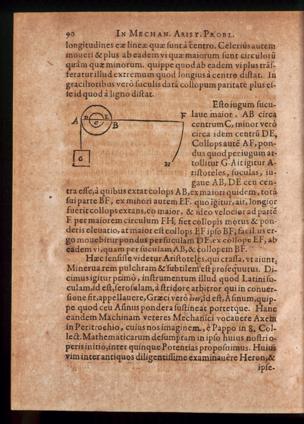 90 IN MECHAN. ARIST. PROBL.
longitudines eæ lineæ quæ sunt à centro. Celerius autem
moueri & plus ab eadem vi quæ maiorum sunt circulorũ
quàm quæ minorum. quippe quod ab eadem vi plus trãs-
feratur illud extremum quod longius à centro distat. In
gracilioribus verò suculis datâ collopum paritate plus es-
se id quod à ligno distat.
Esto iugum sucu-
lae maior. AB circa
centrum C, minor verò
circa idem centrũ DE,
Collops autē AF, pon-
dus quod per iugum at-
tollitur G. Ait igitur A-
ristoteles, suculas, iu-
gaue AB, DE ceu cen-
tra esse, à quibus extat colops AB, ex maiori quidem, tota
sui parte BF, ex minori autem EF. quo igitur, ait, longior
fuerit collops extans, eo maior. & ideo velocior ad partē
F per maiorem circulum FH, fiet collopis motus & pon-
deris eleuatio, at maior est collops EF ipso BF, facilius er-
go mouebitur pondus per suculam DE ex collope EF, ab
eadem vi, quàm per suculam AB, & collopem BF.
Hæc sensisse videtur Aristoteles, qui crassa, vt aiunt,
Minerua rem pulchram & subtilem est prosequutus. Di-
cimus igitur primò, instrumentum illud quod Latini su-
culam, id est, serosulam, à stridore arbitror qui in conuer-
sione fit, appellauere, Græci verò id est Asinum, quip-
pe quod ceu Asinus pondera sustineat portetque. Hanc
eandem Machinam veteres Mechanici vocauere Axem
in Peritrochio, cuius nos imaginem, è Pappo in 8. Col-
lect. Mathematicarum desumptam in ipso huius nostri o-
peris initio, inter quinque Potentias proposuimus. Huius
vim inter antiquos diligentissimè examinauêre Heron, &
ipse-
A D E B
C
F
G
H